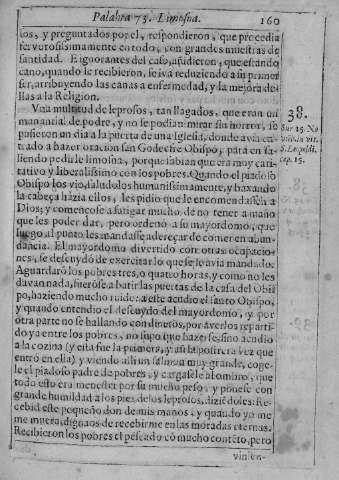 Palabra 73. Limosna. 160
los, y preguntados por el, respondieron, que procedia
fervorosissimamente en todo, con grandes muestras de
santidad. E ignorantes del caso, añidieron, que estando
cano, quando le recibieron, se iva reduziendo a su primer
ser, atribuyendo las canas a enfermedad, y la mejora de
llas a la Religion.
Vna multitud de leprosos, tan llagados, que eran un
manantial de podre, y no se podian mirar sin horror, se
pusieron un dia a la puerta de una Iglesia, donde avia en-
trado a hazer oracion san Godeche Obispo, para en sa-
liendo pedirle limosna, porque sabian que era muy cari-
tativo y liberalissimo con los pobres. Quando el piadoso
Obispo los vio, saludolos humanissimamente, y baxando
la cabeça hazia ellos, les pidio que le encomendassen a
Dios; y començose a fatigar mucho de no tener a mano
que les poder dar, pero ordenò a su mayordomo, que
luego al punto les mandasse adereçar de comer en abun-
dancia. El mayordomo divertido con otras ocupacio-
nes, se descuydó de exercitar lo que se le avia mandado.
Aguardarõ los pobres tres, o quatro horas, y como no les
davan nada, fuerõse a batir las puertas de la casa del Obis
po, haziendo mucho ruido: a este acudio el santo Obispo,
y quando entendio el descuydo del mayordomo, y por
otra parte no se hallando con dineros, por averlos reparti-
do ya entre los pobres, no supo que hazerse, sino acudio
a la cozina (y esta fue la primera, y aun la postrera vez que
entrò en ella) y viendo alli un salmon muy grande, coge-
le el piadoso padre de pobres, y cargasele al ombro, que
todo esto era menester por su mucho peso, y ponese con
grande humildad a los pies de los leprosos, dizièdoles: Re-
cebid este pequeño don de mis manos, y quando yo me
me muera, dignaos de recebirme en las moradas eternas.
Recibieron los pobres el pescado cõ mucho contèto, pero
vinien-
38.
Sur 15. No
cap. 15.